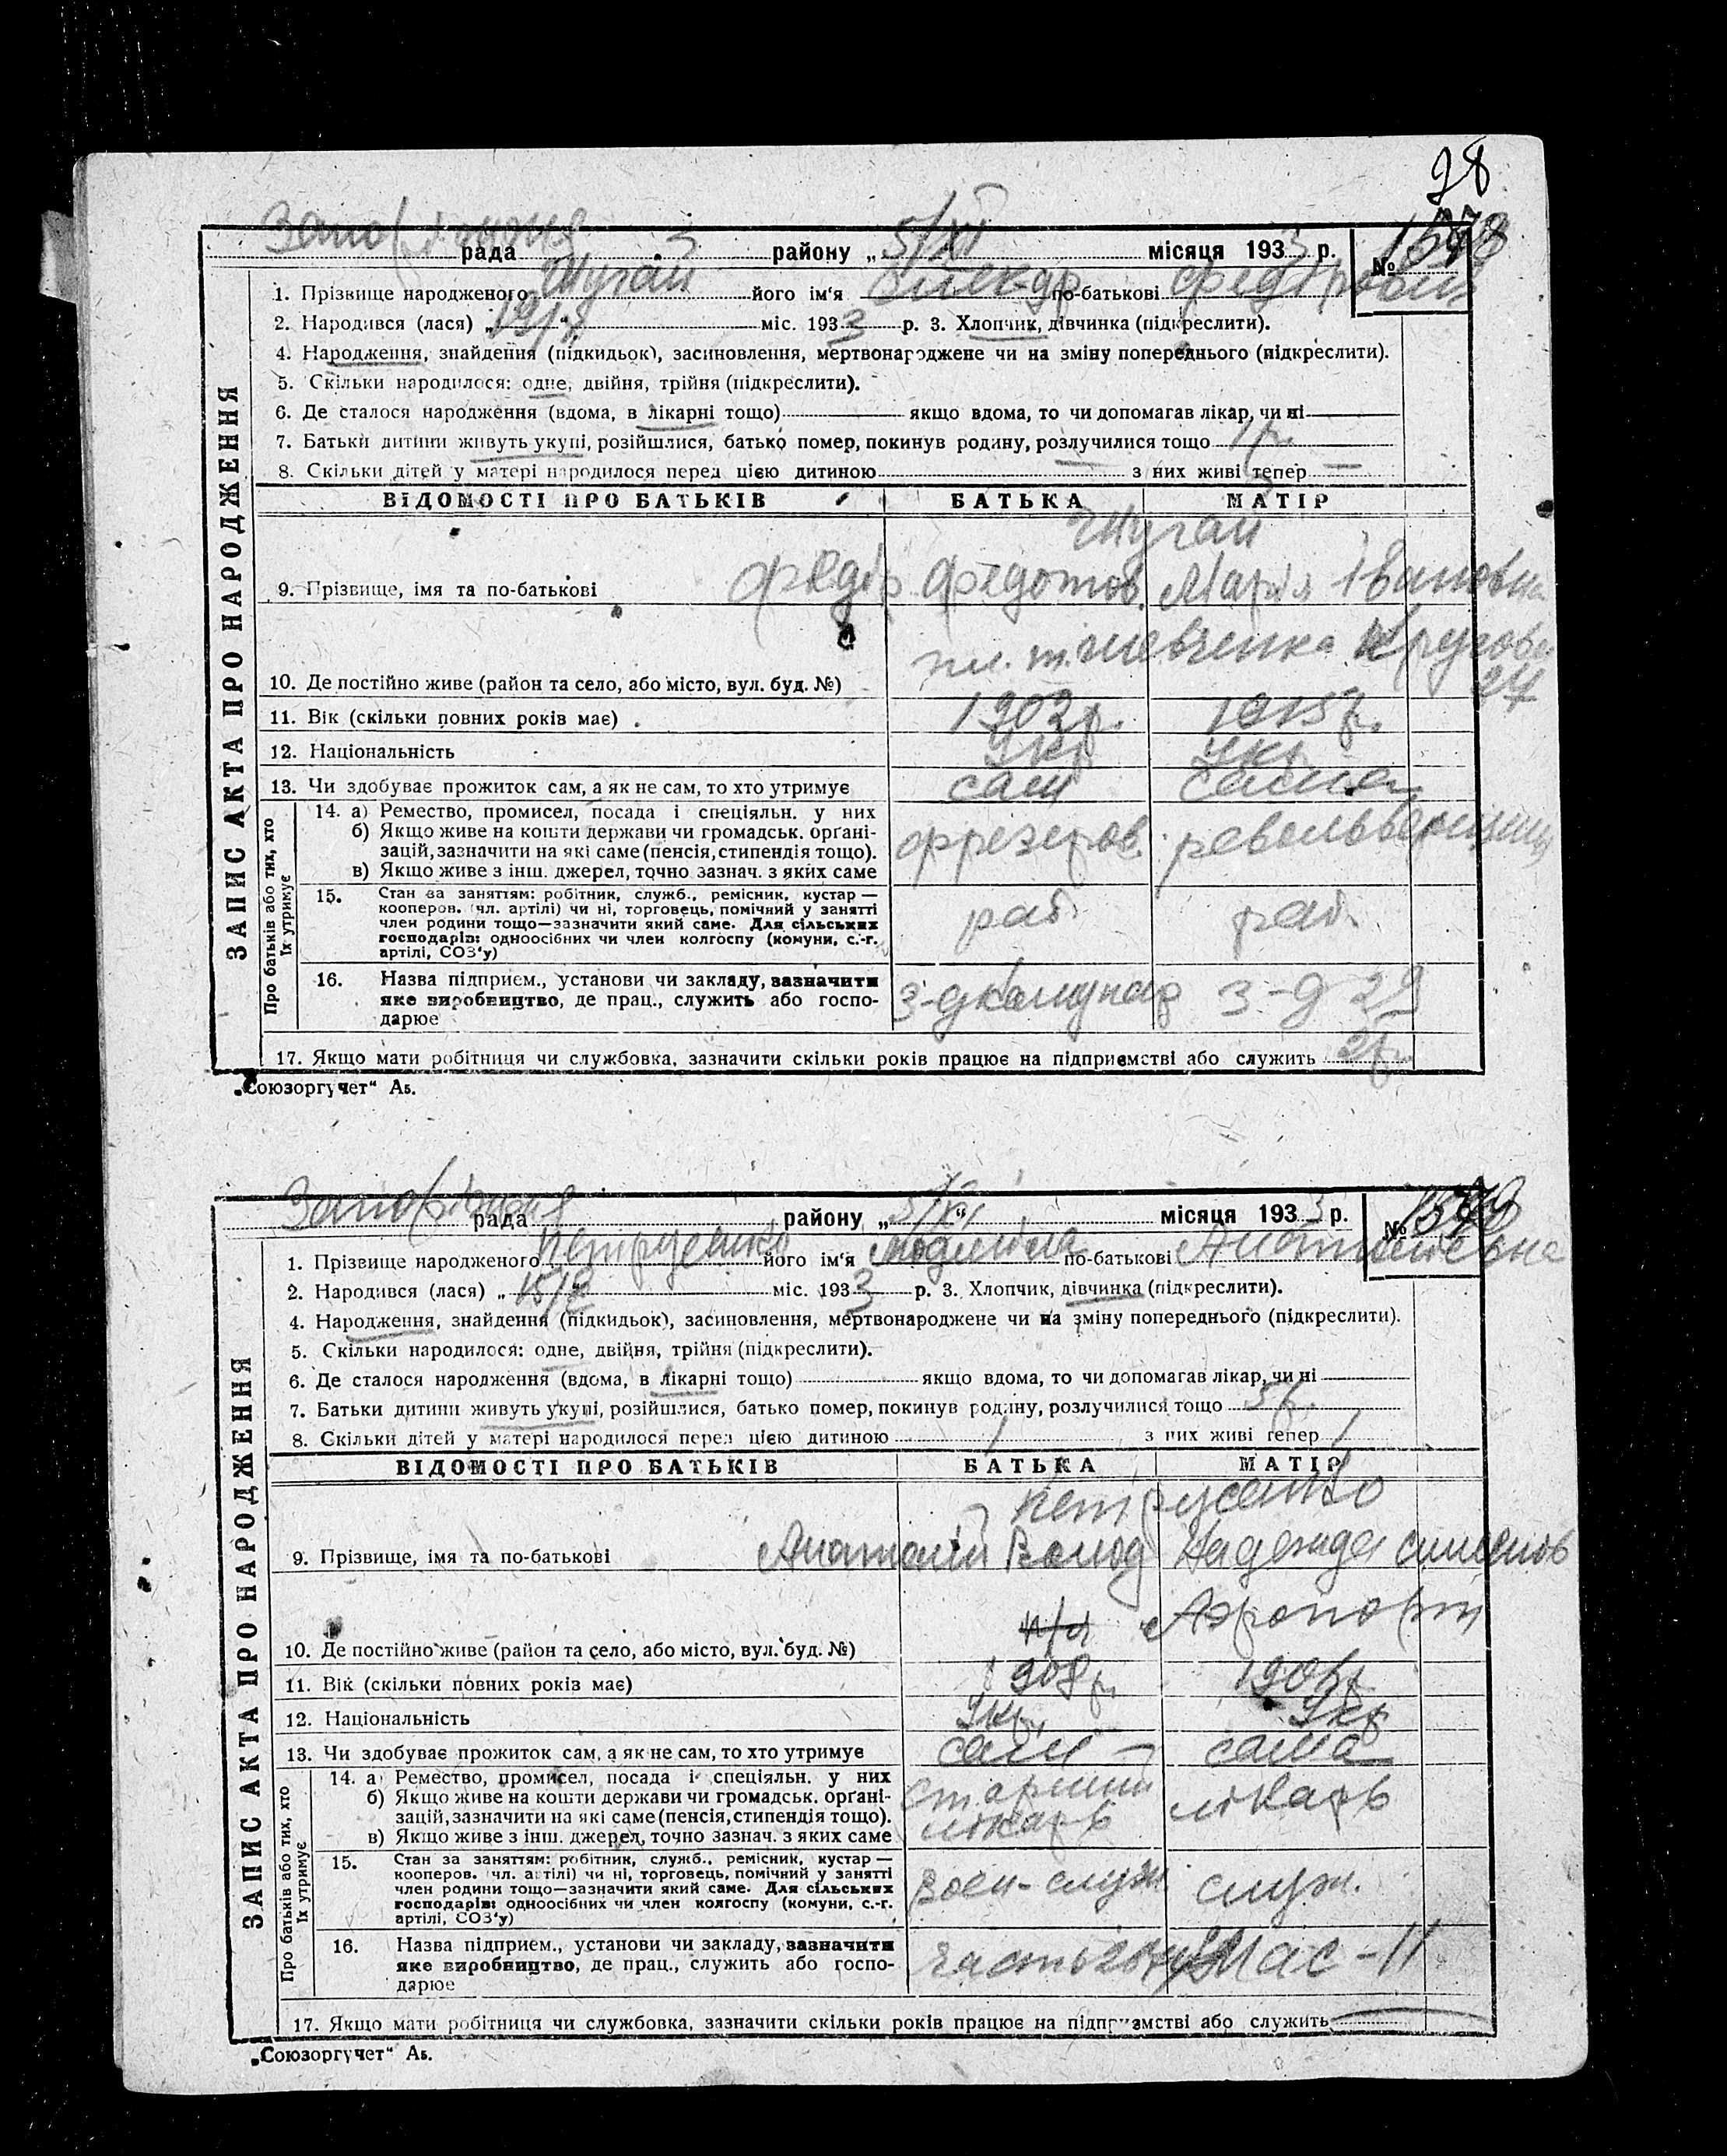 28
рада 3 району „ 5/XI “ місяця 1933 р. №
1. Прізвище народженого Шугай його ім‘я по-батькові
2. Народився (лася) „ “ міс. 1933 р. 3. Хлопчик, дівчинка (підкреслити).
4. Народження, знайдення (підкидьок), засиновлення, мертвонароджене чи на зміну попереднього (підкреслити).
5. Скільки народилося: одне, двійня, трійня (підкреслити).
6. Де сталося народження (вдома, в лікарні тощо) якщо вдома, то чи допомагав лікар, чи ні
7. Батьки дитини живуть укупі, розійшлися, батько помер, покинув родину, розлучилися тощо 1р.
8. Скільки дітей у матері народилося перед цією дитиною з них живі тепер —
ВІДОМОСТІ ПРО БАТЬКІВ БАТЬКА МАТІР
Шугай
9. Прізвище, імя та по-батькові Федір Федотов. Марія Івановна
Шевченка
27
10. Де постійно живе (район та село, або місто, вул. буд. №)
11. Вік (скільки повних років має) 1903р. 1915р.
12. Національність Укр Укр
13. Чи здобуває прожиток сам, а як не сам, то хто утримує сам сама
14. а) Ремество, промисел, посада і спеціяльн. у них
б) Якщо живе на кошти держави чи громадськ. орґані-
зацій, зазначити на які саме (пенсія, стипендія тощо). фрезеров.
в) Якщо живе з інш. джерел, точно зазнач. з яких саме
15. Стан за заняттям: робітник, служб., ремісник, кустар —
кооперов. (чл. артілі) чи ні, торговець, помічний у занятті
член родини тощо—зазначити який саме. Для сільських раб. раб.
господарів: одноосібних чи член колгоспу (комуни, с.-г.
артілі, СОЗ‘у)
16. Назва підприєм., установи чи закладу, зазначити
яке виробництво, де прац., служить або госпо- з-д комунар з-д 29
дарює
17. Якщо мати робітниця чи службовка, зазначити скільки років працює на підприємстві або служить 2р.
ЗАПИС АКТА ПРО НАРОДЖЕННЯ
Про батьків або тих, хто
їх утримує
„Союзоргучет“ Аь.
рада району „ 5/XI “ місяця 1933 р. №
1. Прізвище народженого Петрусенко його ім‘я Людміла по-батькові
2. Народився (лася) „ 15/X “ міс. 1933 р. 3. Хлопчик, дівчинка (підкреслити).
4. Народження, знайдення (підкидьок), засиновлення, мертвонароджене чи на зміну попереднього (підкреслити).
5. Скільки народилося: одне, двійня, трійня (підкреслити).
6. Де сталося народження (вдома, в лікарні тощо) якщо вдома, то чи допомагав лікар, чи ні
7. Батьки дитини живуть укупі, розійшлися, батько помер, покинув родину, розлучилися тощо 5р.
8. Скільки дітей у матері народилося перед цією дитиною 1 з них живі тепер 1
ВІДОМОСТІ ПРО БАТЬКІВ БАТЬКА МАТІР
Петрусенко
9. Прізвище, імя та по-батькові Анатолій Волод Надежда Симонов
Аэропорт
10. Де постійно живе (район та село, або місто, вул. буд. №)
11. Вік (скільки повних років має) 1908р. 1906р.
12. Національність Укр. Укр
13. Чи здобуває прожиток сам, а як не сам, то хто утримує сам — сама
14. а) Ремество, промисел, посада і спеціяльн. у них
б) Якщо живе на кошти держави чи громадськ. орґані- старший лікарь
зацій, зазначити на які саме (пенсія, стипендія тощо). лікарь
в) Якщо живе з інш. джерел, точно зазнач. з яких саме
15. Стан за заняттям: робітник, служб., ремісник, кустар —
кооперов. (чл. артілі) чи ні, торговець, помічний у занятті
член родини тощо—зазначити який саме. Для сільських воен-служ. служ.
господарів: одноосібних чи член колгоспу (комуни, с.-г.
артілі, СОЗ‘у)
16. Назва підприєм., установи чи закладу, зазначити
яке виробництво, де прац., служить або госпо- часть
дарює
17. Якщо мати робітниця чи службовка, зазначити скільки років працює на підприємстві або служить
ЗАПИС АКТА ПРО НАРОДЖЕННЯ
Про батьків або тих, хто
їх утримує
„Союзоргучет“ Аь.